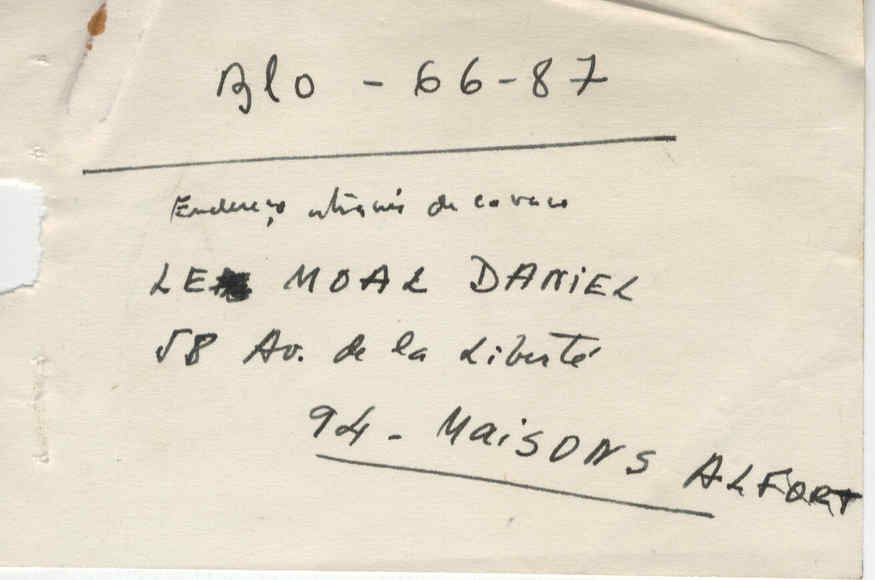 Blo - 66-87
Endereço através de cavaco
LE MOAL DANIEL
58 Av. de la Liberté
94 - MAISONS ALFORT